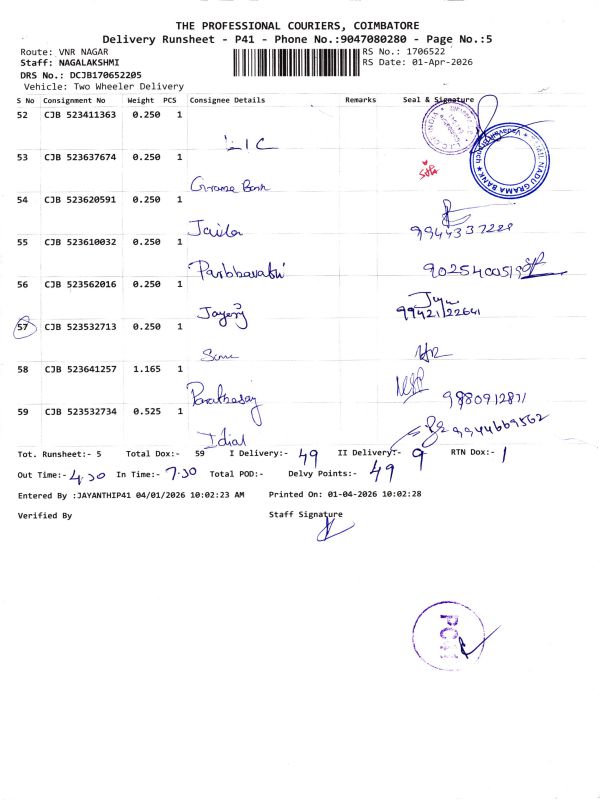 THE PROFESSIONAL COURIERS, COIMBATORE
Delivery Runsheet - P41 - Phone No.:9047080280 - Page No.:5
Route: VNR NAGAR
RS No.: 1706522
Staff: NAGALAKSHMI
RS Date: 01-Apr-2026
DRS No.: DCJB170652205
Vehicle: Two Wheeler Delivery
S No Consignment No Weight PCS Consignee Details Remarks Seal & Signature
52 CJB 523411363 0.250 1
LIC
53 CJB 523637674 0.250 1
Grama Bank
TAMIL NADU GRAMA BANK
54 CJB 523620591 0.250 1
Jailor
55 CJB 523610032 0.250 1
9025400519
56 CJB 523562016 0.250 1
9942122641
57 CJB 523532713 0.250 1
58 CJB 523641257 1.165 1
59 CJB 523532734 0.525 1
9944669562
Idial
Tot. Runsheet:- 5 Total Dox:- 59 I Delivery:- 49 II Delivery:- 9 RTN Dox:- 1
Out Time:- 4.30 In Time:- 7.30 Total POD:- Delvy Points:- 49
Entered By :JAYANTHIP41 04/01/2026 10:02:23 AM Printed On: 01-04-2026 10:02:28
Verified By Staff Signature